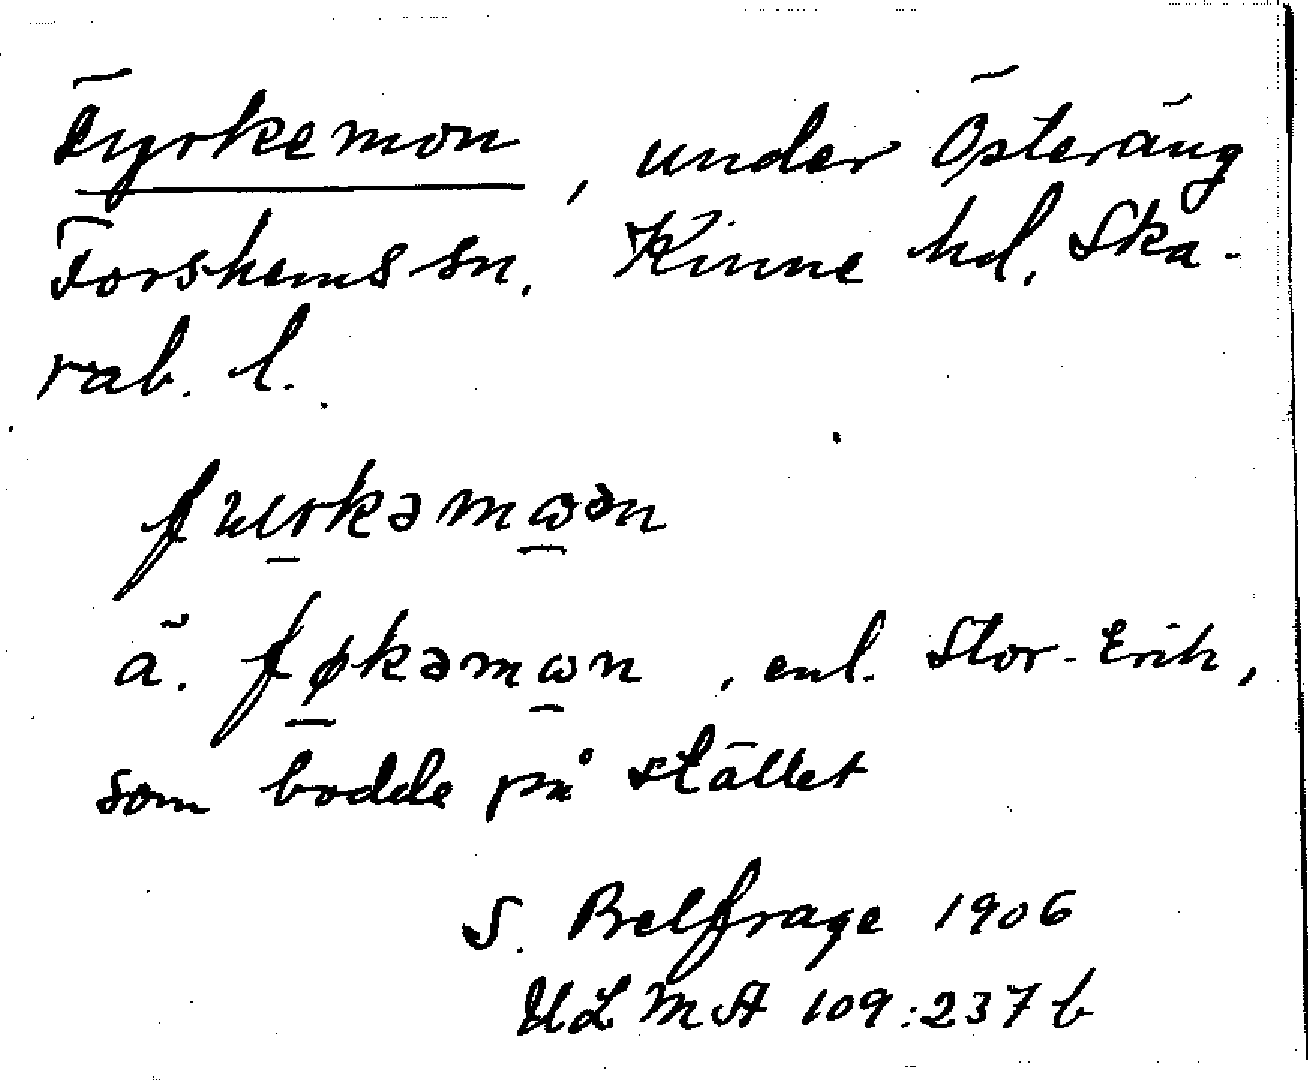 Fyrkemon, under Österäng
Forshems sn. Kinne hd. Ska-
rab. l.
fuɩrkəmωən
ä. føkəmωn, enl. Stor-Erik,
som bodde på stället
S. Belfrage 1906
ULMA 109:237 b